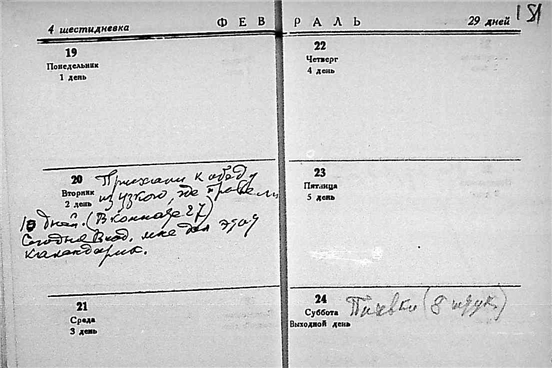 4 шестидневка
ФЕВ
19
Понедельник
1 день
20
Вторник
2 день
Приехали к обеду
из узкого, где провели
10 дней. (В комнате 27)
Сегодня Влад. мне дал этот
календарик.
21
Среда
3 день
РАЛЬ
29 дней
151
22
Четверг
4 день
23
Пятница
5 день
24
Суббота
Выходной день
Пиявки (8 штук)